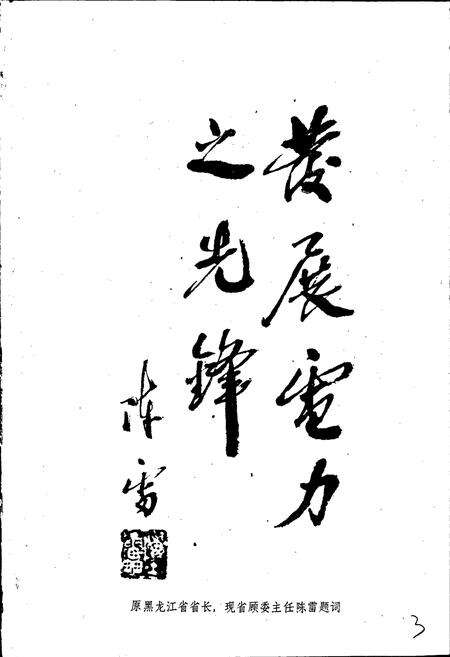 發展電力
之先鋒
陈雷
原黑龙江省省长，现省顾委主任陈雷题词
3